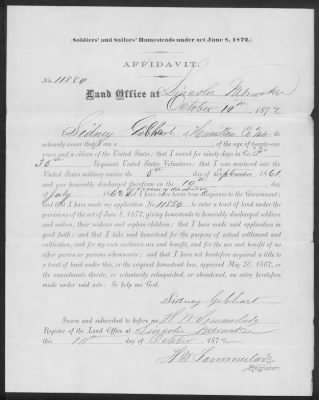 (Soldiers' and Sailors' Homesteads under act June 8, 1872.)
AFFIDAVIT.
No. 11880
Land Office at Lincoln Nebraska
October 10th 1872
I, Sidney Gibhart of Hamilton Co Neb. do
solemnly swear that I am a of the age of twenty-one
years and a citizen of the United States; that I served for ninety days in Co.
Regiment United States Volunteers; that I was mustered into the
United States military service the 6th day of September 1861
and was honorably discharged therefrom on the 19th day
of July 1862 that I have since borne true allegiance to the Government;
and that I have made my application No. 11880 to enter a tract of land under the
provisions of the act of June 8, 1872, giving homesteads to honorably discharged soldiers
and sailors, their widows and orphan children; that I have made said application in
good faith; and that I take said homestead for the purpose of actual settlement and
cultivation, and for my own exclusive use and benefit, and for the use and benefit of no
other person or persons whomsoever; and that I have not heretofore acquired a title to
a tract of land under this, or the original homestead law, approved May 20, 1862, or
the amendments thereto, or voluntarily relinquished, or abandoned, an entry heretofore
made under said acts: So help me God.
Sidney Gibhart
Sworn and subscribed to before me
Register of the Land Office at Lincoln Nebraska
this 10th day of October 1872
Register.